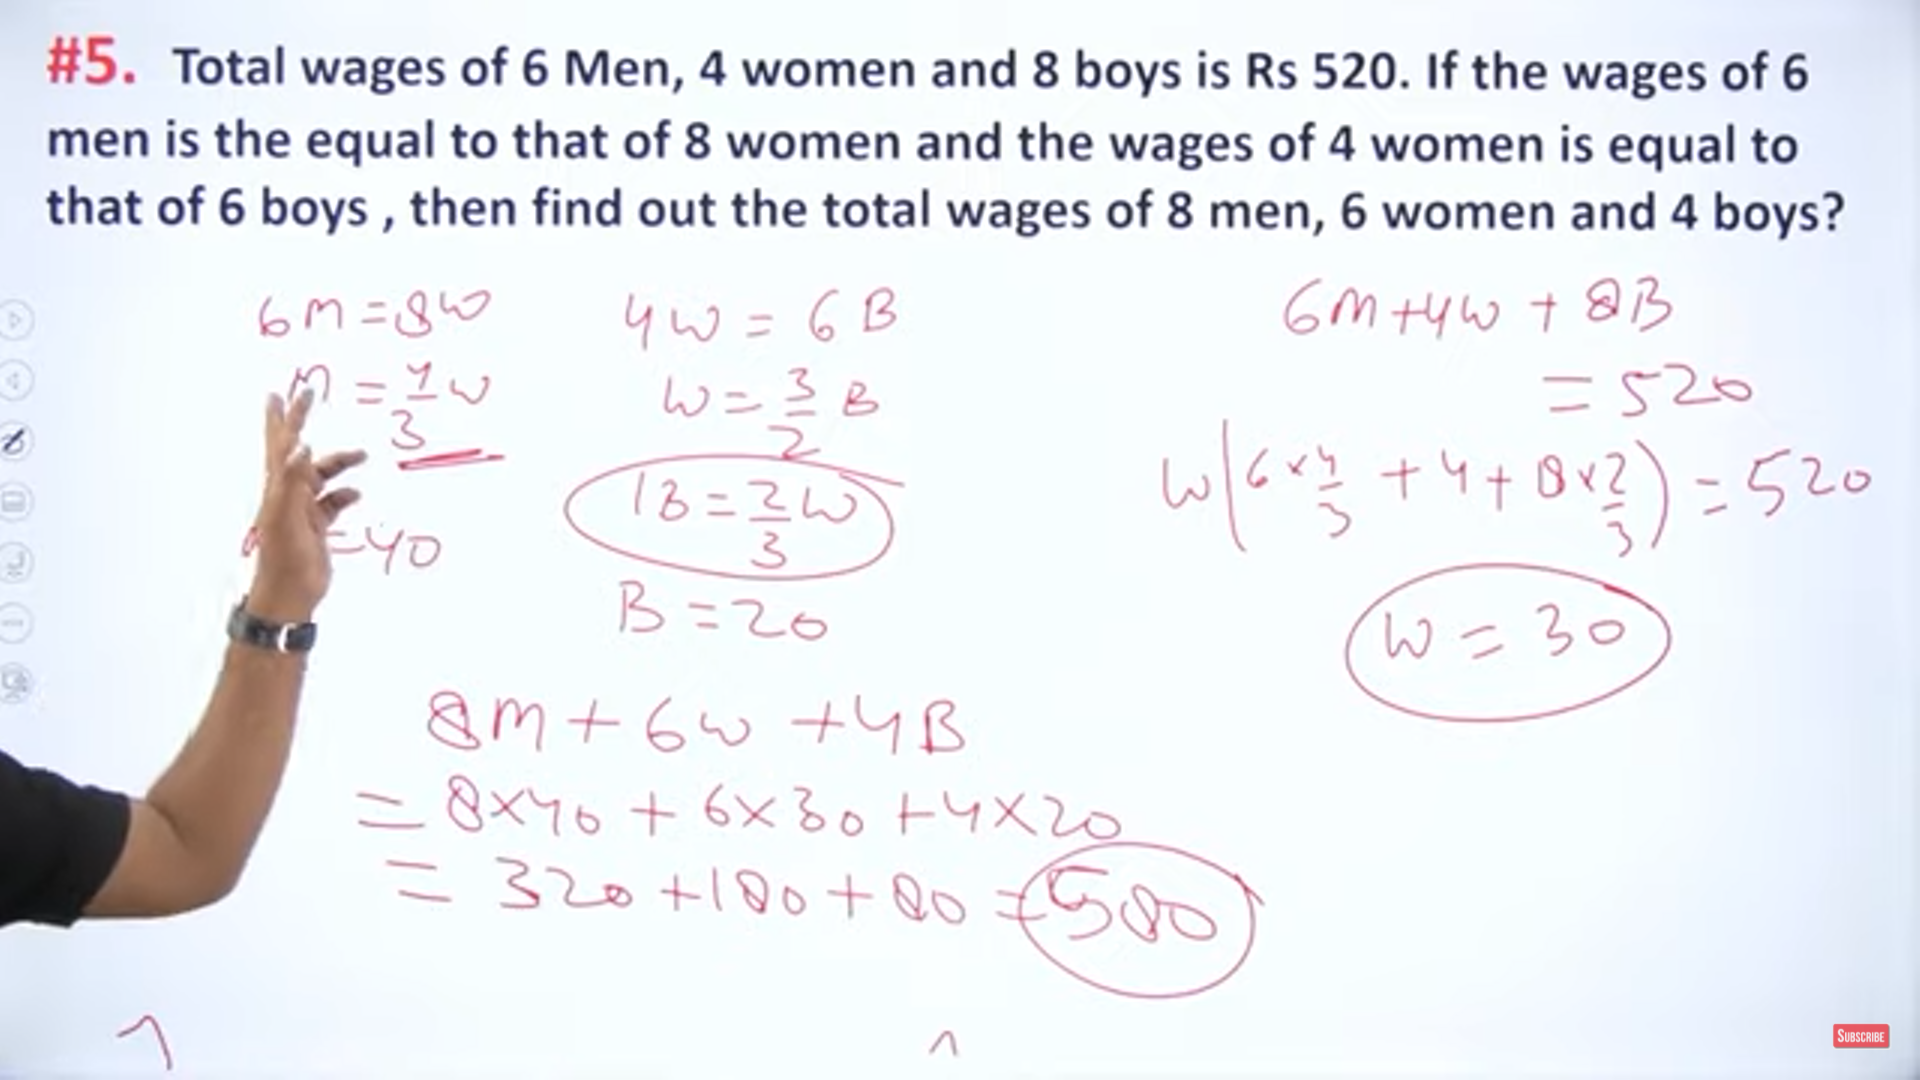 #5. Total wages of 6 Men, 4 women and 8 boys is Rs 520. If the wages of 6
men is the equal to that of 8 women and the wages of 4 women is equal to
that of 6 boys , then find out the total wages of 8 men, 6 women and 4 boys?
6M = 8W
M = 4/3 W
= 40
4W = 6B
W = 3/2 B
1B = 2/3 W
B = 20
6M + 4W + 8B
= 520
W(6 × 4/3 + 4 + 8 × 2/3) = 520
W = 30
8M + 6W + 4B
= 8×40 + 6×30 + 4×20
= 320 + 180 + 80 = 580
SUBSCRIBE